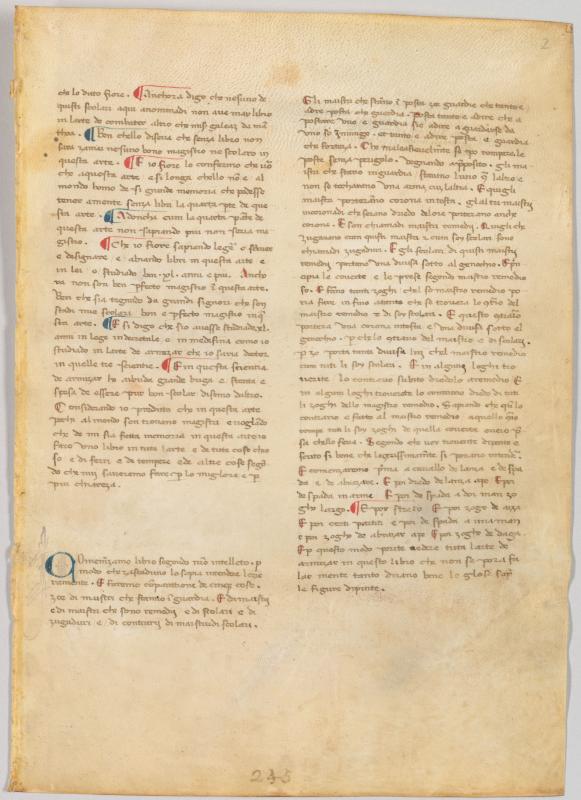 che lo dito fiore. Anchora digo che nesuno de
questi scolari aqui anominadi non ave may libro
in larte de combater altro che miss galeaz da man
tva. Ben chello diseva che senza libro non
sara zamay nesuno bono magistro ne scolaro in
questa arte. E io fiore lo confermo che vero
che aquesta arte e si longa chello non e al
mondo homo de si grande memoria che podesse
tenere amente senza libri la quarta pte de que
sta arte. Adoncha cum la quarta pte de
questa arte non sapiando piu non seria ma
gistro.
Che io fiore sapiando legere e scrivere
e designare e abiando libri in questa arte e
in lei o studiado ben xl. anni e piu. Ancho
ra non son ben pfecto magistro in questa arte.
Ben che sia tegnudo da grandi signori che son
stadi mie scolari bon e pfecto magistro in q
sta arte. E si digo che sio avesse studiado xl.
anni in lege in decretale e in medesina como io
studiado in larte de armizar che io saria doctor
in quelle tre scientie. E in questa scientia
de armizar ho abiuda grande briga e stenta e
spesa de essere pur bon scolar disemo daltro.
Considerando io predito che in questa arte
pochi al mondo sen trovano magistri e vogliando
che de mi sia fatta memoria in questa arte io
farò uno libro in tuta larte e de tute cose che
so e di ferri e de tempere e de altre cose segon
do che nuy saveremo fare p lo migliore e p
piu chiareza.
Comenzamo libro segondo nro intelleto. p
modo che zaschaduno lo sapia intendere legie
ramente. E faremo comparatione de cinque cose.
zoe di maistri che stanno in guardia. E di maistri
e di maistri che sono remedii e di scolari e di
zugaduri e di contrarii di maistri e di scolari.
Gli maistri che stano in posta zoe guardie che tanto e
a dire posta che guardia. E posta tanto e adire che a
postare uno e guardia sie adire a guardarse da
uno so inimigo. et tanto e adire posta e guardia
che forteza. Che malasevelmente se po rompere le
poste senza perigolo. tegnando apposito. Gli ma
istri che stano in guardia stanno luno contra laltro e
non se tochavano una arma cum laltra. E quigli
maistri porterano corona in testa. gl altri maistri
incoronadi che serano driedo da lore porterano anche
corone. E son chiamadi maistri remedii. E quigli che
zugarano cum questi maistri e cum soy scolari sono
chiamadi zugaduri. E gli scolari di questi maistri
remedii portano una divisa sotto al genochio. E fara
copia le coverte e le prese segondo maistro remedio
so. E farano tanti zoghi chel so maistro remedio po
ria fare in fino atanto che se trovera lo contrario del
maistro remedio e di soy scolari. E questo contrario
portera una corona in testa e una divisa sotto el
genochio. pche lo contrario del maistro e di scolari.
p zo porta tanta divisa lui chel maistro remedio
cum tuti li soy scolari. E in alguni loghi tro
verite lo contrario subito driedolo aremedio E
in alguni loghi trovarete lo contrario driedo di tuti
li zoghi dello magistro remedio. Sapiando che quello
contrario e fatto al maistro remedio aquello che
rompe tuti li soy zoghi de quella coverta overo p
sa chello feva. Segondo che ver trovarete depento e
scrito si bene che legierissimamente si porano intender.
E comenzaremo prima a cavallo de lanza e de spa
da e de abrazare. E poi driedo de lanza a pe E poi
de spada in arme E poi de spada a doy man zo
gho largo. E poy streto E poi zogo de aza
E poi certi partiti e poi de spada a una man
e poi zogho de abrazar a pe E poi zogho de daga.
E p questo modo porite vedere tuta larte de
armizar in questo libro che non se pora fa
lar niente tanto dirano bene le glose sopra
le figure depinte.
2
245